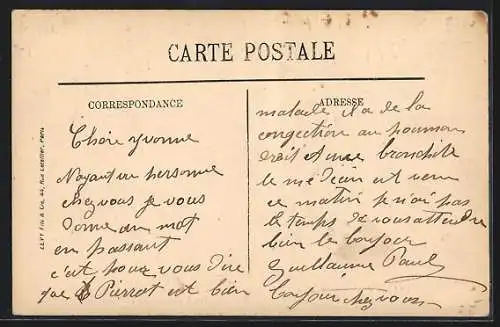 CARTE POSTALE
CORRESPONDANCE
Chère Yvonne
Nayant vu personne
chez vous je vous
donne un mot
en passant
c'est pour vous dire
que Pierrot est bien
ADRESSE
malade il a de la
congection au poumon
droit et une bronchite
le médecin est venu
ce matin je n'ai pas
le temps de vous attendre
bien le bonjour
Guillaume Paul
bonjour chez vous